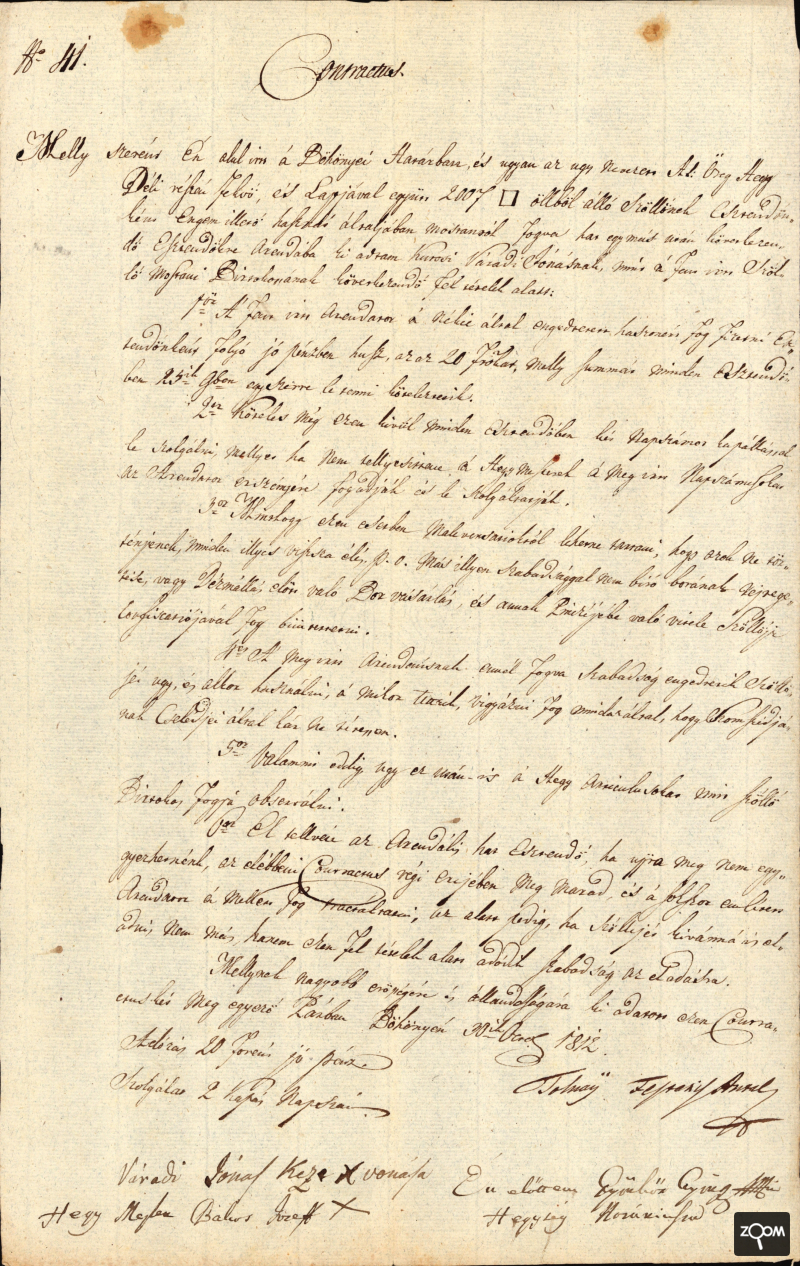 No 41.
Contractus
Melly szerént Én alul irt á Bökönyei Határban, és ugyan az ugy nevezett Öreg Hegy
Déli részén fekvö, és Lapjával együtt 2007 □ ölből álló Szöllőnek Esztendőn-
ként Engem illető hasznát általjában mostantól fogva hat egymást után következen-
dő Esztendőkre Arendába ki adtam Váradi Jónásnak, mint á fent irt Szöl-
lő mostani Birtokossanak következendő fel tételek alatt:
1ör A fent irt Arendator á Nékie által engedtetett haszonért fog fizetni Esz-
tendőnként folyó jó pénzben husz, az az 20 frtokat, melly summát minden Esztendő-
ben 25ik 9ben egyszerre le tenni köteleztetik.
2or Köteles még ezen kivül minden esztendőben két Napszámot kapállással
le szolgálni, mellyet ha nem tellyesittene, á Hegymesterek á meg irt Napszámosokat
az Arendator erszényére fogadják és le szolgáltatják.
3or Minthogy ezen esetben Malversatioktól lehetne tartani, hogy azok ne tör-
ténjenek, minden illyes vissza élés, p. o. Más illyen szabadsággal nem biró borának
vagy Dézmállás előtt való Bor vásárlás, és annak Pinczéjébe való vitele Szöllője
Confiscatiojával fog büntettetni.
4er A Meg irt Arendásnak ennél fogva szabadság engedtetik Szöllő-
jét ugy, és akkor használni, á mikor tetszik, vigyázni fog mindazáltal, hogy Szomszédjá-
nak Cselédjei által kár ne tétessen.
5ör Valamint eddig, ugy ez után is á Hegy Articulusokat mint Szöllő
Birtokos fogja observálni.
6or El telvén az Arendális hat esztendő, ha ujra meg nem egy-
gyezhetnénk, az elébbeni Contractus régi erejében Meg marad, és á
Arendator á mellett fog tractáltatni, az alatt pedig, ha Szöllőjét kivánná el
adni, nem más, hanem ezen fel tételek alatt adódik szabadság az eladásra.
Mellynek nagyobb erősségére és állandósságára ki adatott ezen Contra-
ctus két Meg egyező Párban Bökönyei 30ik 1812.
Adózás 20 forint jó pénz
Szolgálat 2 kapás Napszám
Tolnay
Váradi Jónás Keze X vonása
Én előttem György
Hegy Mester Bakos Jósef X
Hegység
ZOOM